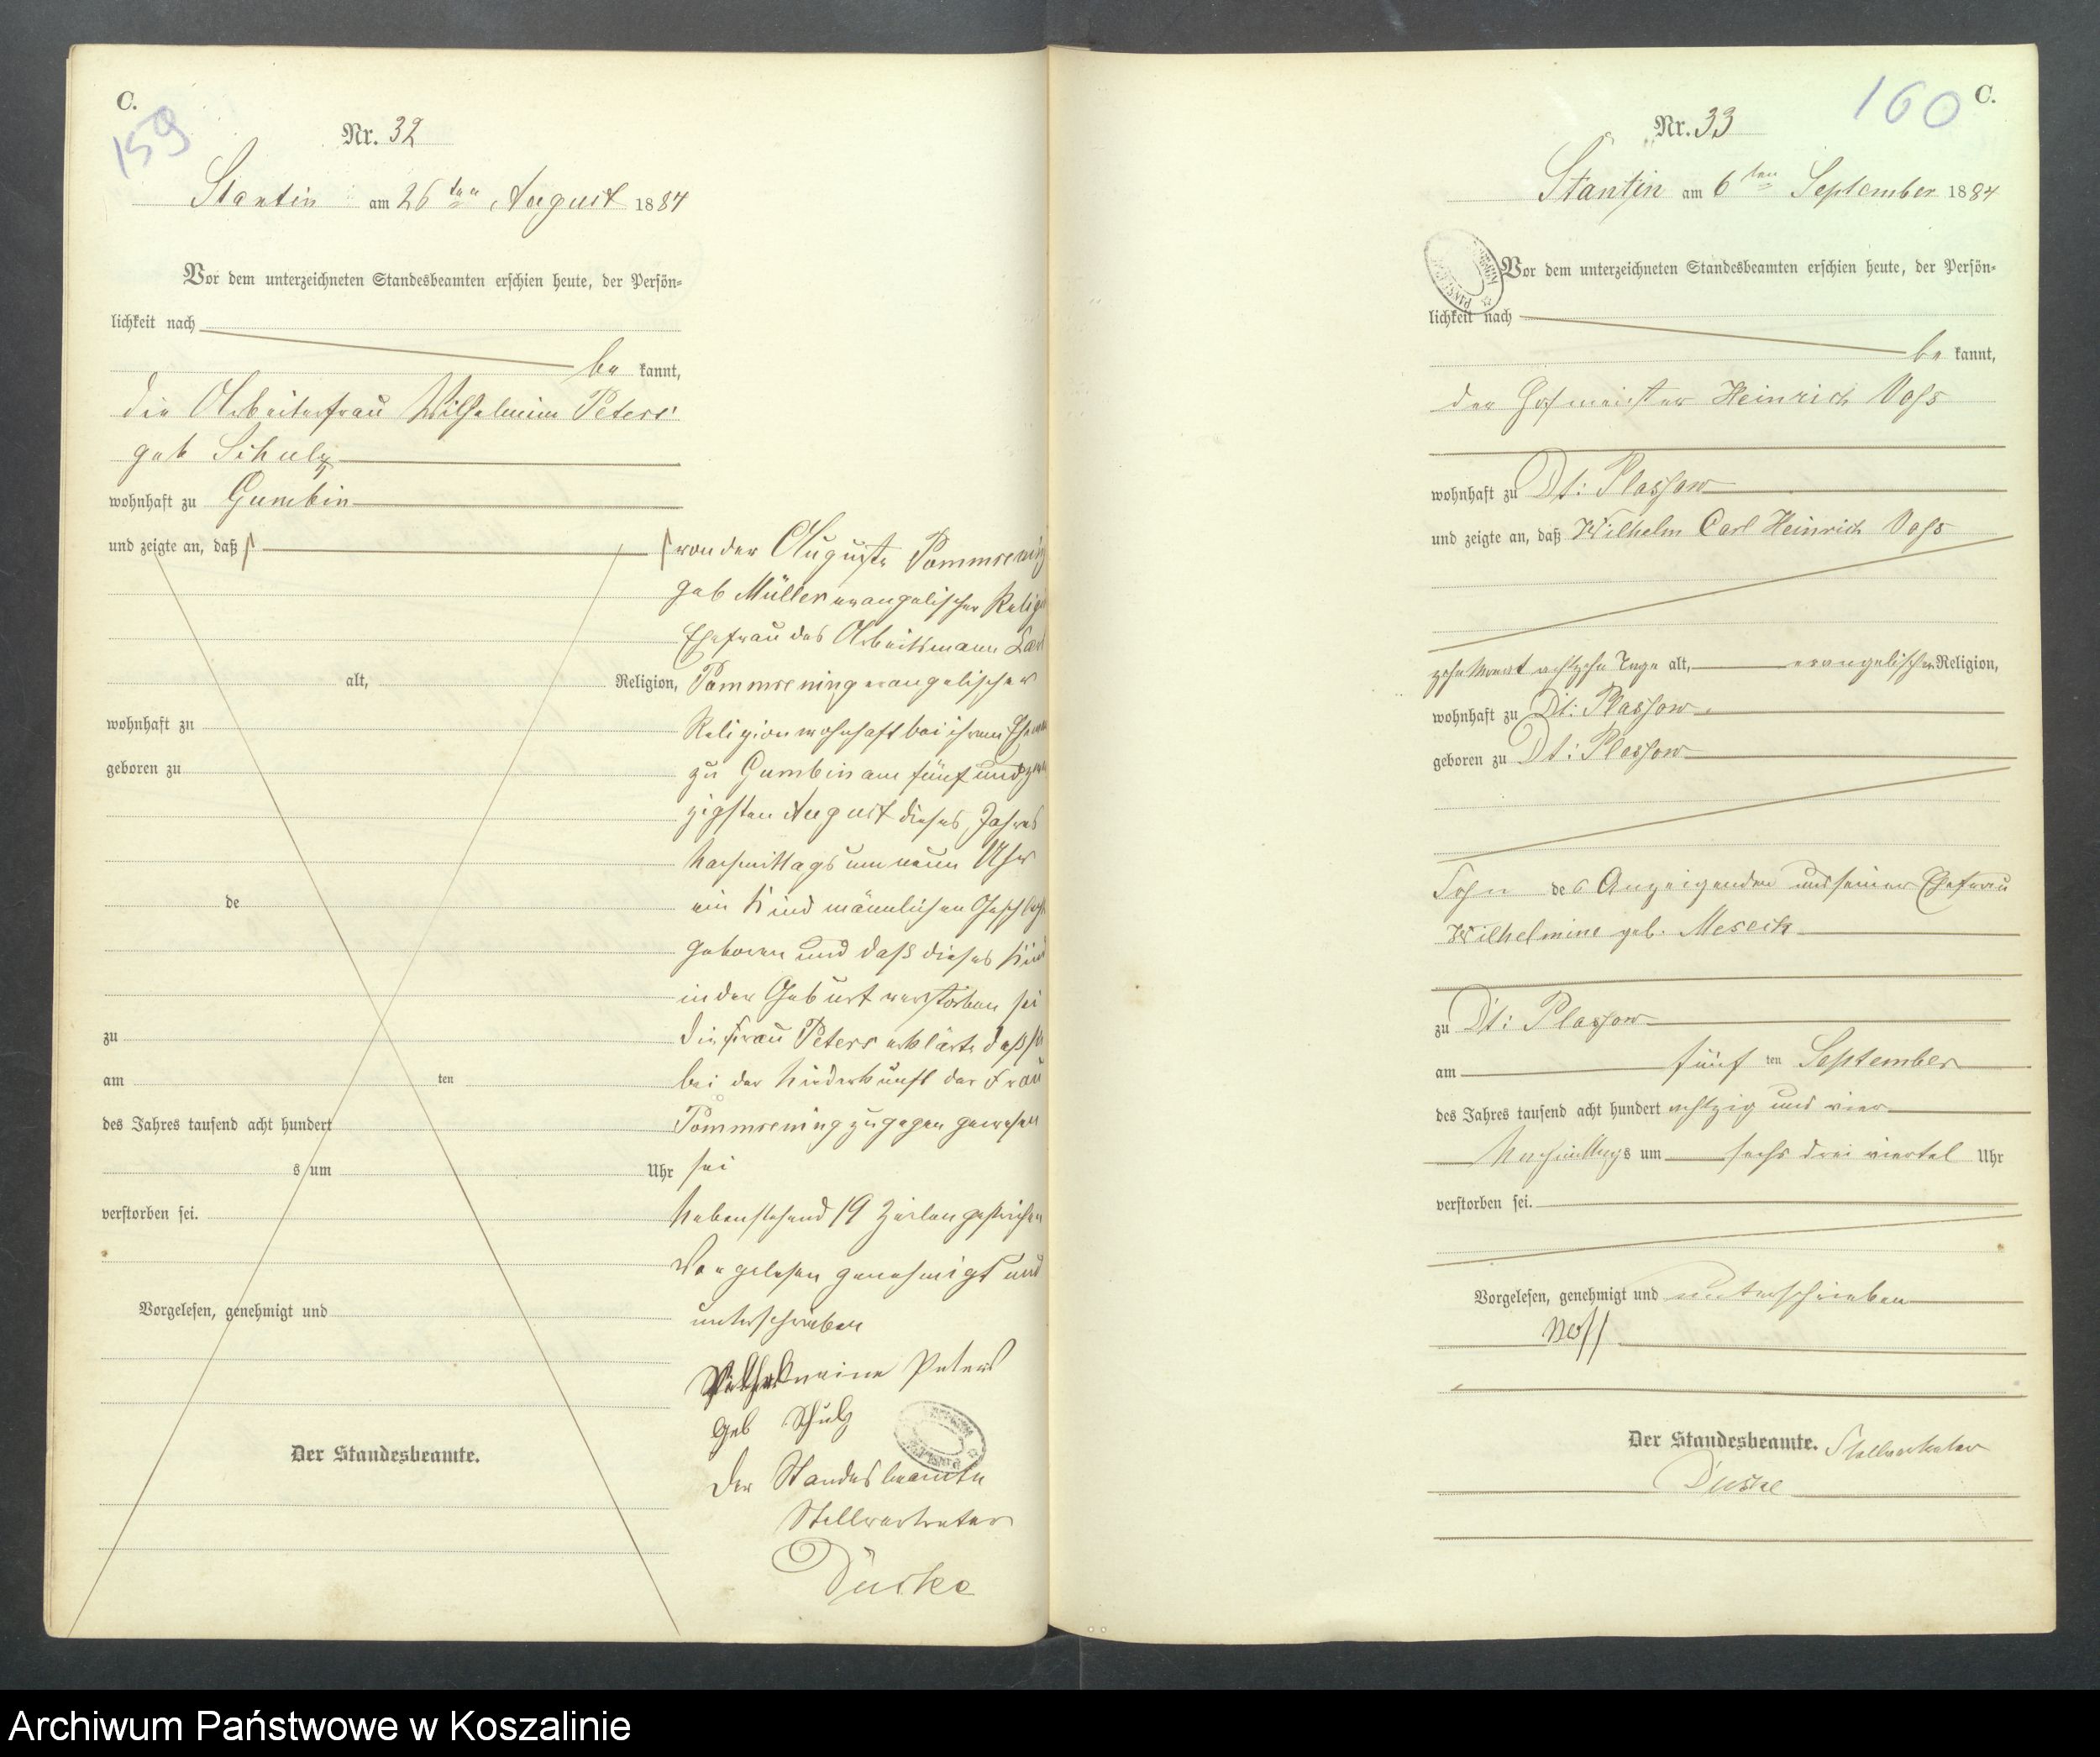 C.
159
Nr. 32
Stantin am 26ten August 1884
Vor dem unterzeichneten Standesbeamten erschien heute, der Persön-
lichkeit nach
be kannt,
die Arbeiterfrau Wilhelmine Peters
geb Schulz
wohnhaft zu Gumbin
und zeigte an, daß
alt, Religion,
wohnhaft zu
geboren zu
de
zu
am ten
des Jahres tausend acht hundert
s um Uhr
verstorben sei.
Vorgelesen, genehmigt und
Der Standesbeamte.
von der Auguste Pommrening
geb Müller evangelischer Religion
Ehefrau des Arbeitsmann Carl
Pommrening evangelischer
Religion wohnhaft bei ihrem
zu Gumbin am fünf und zwan
zigsten August dieses Jahres
Nachmittags um neun Uhr
ein Kind männlichen Geschlechts
geboren und daß dieses Kind
in der Geburt verstorben sei
die Frau Peters erklärte daß sie
bei der Niederkunft der Frau
Pommrening zugegen gewesen
sei
Nebenstehend 19 Zeilen gestrichen
Vorgelesen genehmigt und
unterschrieben
Wilhelmine Peters
geb Schulz
Der Standesbeamte
Stellvertreter
Duske
160
C.
Nr. 33
Stantin am 6ten September 1884
Vor dem unterzeichneten Standesbeamten erschien heute, der Persön-
lichkeit nach
be kannt,
der Hofmeister Heinrich Voss
wohnhaft zu Dt: Plassow
und zeigte an, daß Wilhelm Carl Heinrich Voss
zehn Monat achtzehn Tage alt, evangelischer Religion,
wohnhaft zu Dt: Plassow
geboren zu Dt: Plassow
Sohn des Anzeigenden und seiner Ehefrau
Wilhelmine geb. Meseck
zu Dt: Plassow
am fünf ten September
des Jahres tausend acht hundert achtzig und vier
Nachmittags um sechs drei viertel Uhr
verstorben sei.
Vorgelesen, genehmigt und unterschrieben
Voss
Der Standesbeamte. Stellvertreter
Duske
Archiwum Państwowe w Koszalinie